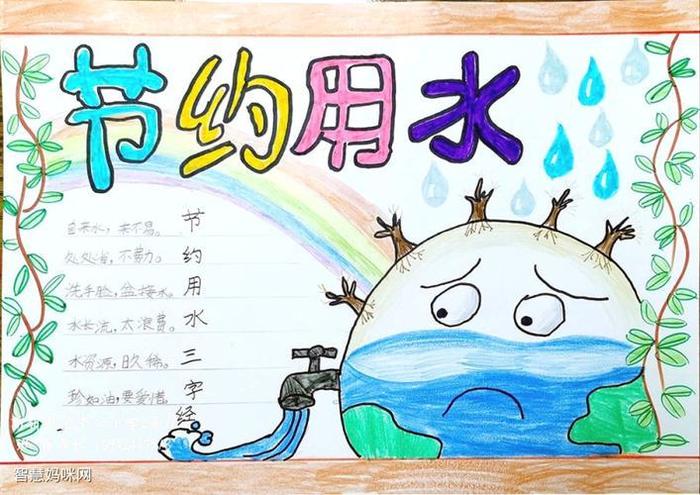 节约用水
自来水，来不易。
处处省，不费力。
洗手脸，盆接水。
水长流，太浪费。
水资源，日久稀。
珍如油，要爱惜。
节约用水三字经
智慧妈咪网